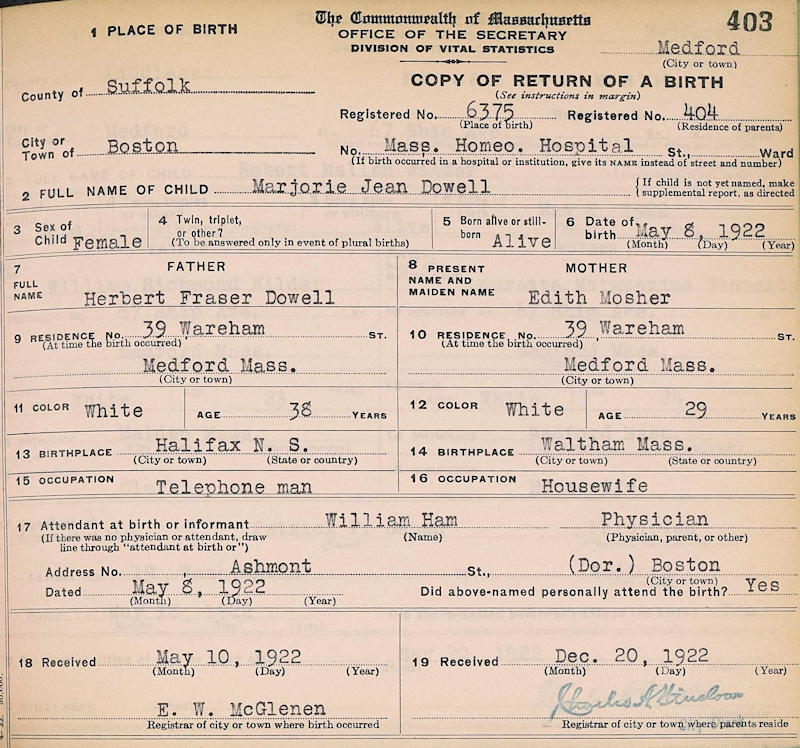 The Commonwealth of Massachusetts
403
1 PLACE OF BIRTH
OFFICE OF THE SECRETARY
DIVISION OF VITAL STATISTICS
Medford
(City or town)
County of Suffolk
COPY OF RETURN OF A BIRTH
(See instructions in margin)
Registered No. 6375 Registered No. 404
(Place of birth) (Residence of parents)
City or
Town of Boston
No. Mass. Homeo. Hospital St., Ward
(If birth occurred in a hospital or institution, give its NAME instead of street and number)
2 FULL NAME OF CHILD Marjorie Jean Dowell
{ If child is not yet named, make
supplemental report, as directed
3 Sex of
Child Female
4 Twin, triplet,
or other?
(To be answered only in event of plural births)
5 Born alive or still-
born Alive
6 Date of
birth May 8, 1922
(Month) (Day) (Year)
7 FATHER
FULL
NAME Herbert Fraser Dowell
8 PRESENT MOTHER
NAME AND
MAIDEN NAME Edith Mosher
9 RESIDENCE No. 39 Wareham ST.
(At the time the birth occurred)
Medford Mass.
(City or town)
10 RESIDENCE No. 39 Wareham ST.
(At the time the birth occurred)
Medford Mass.
(City or town)
11 COLOR White AGE 38 YEARS
12 COLOR White AGE 29 YEARS
13 BIRTHPLACE Halifax N. S.
(City or town) (State or country)
14 BIRTHPLACE Waltham Mass.
(City or town) (State or country)
15 OCCUPATION Telephone man
16 OCCUPATION Housewife
17 Attendant at birth or informant William Ham Physician
(If there was no physician or attendant, draw
line through "attendant at birth or")
(Name) (Physician, parent, or other)
Address No. , Ashmont St., (Dor.) Boston
(City or town)
Dated May 8, 1922
(Month) (Day) (Year)
Did above-named personally attend the birth? Yes
18 Received May 10, 1922
(Month) (Day) (Year)
19 Received Dec. 20, 1922
(Month) (Day) (Year)
E. W. McGlenen
Registrar of city or town where birth occurred
Registrar of city or town where parents reside